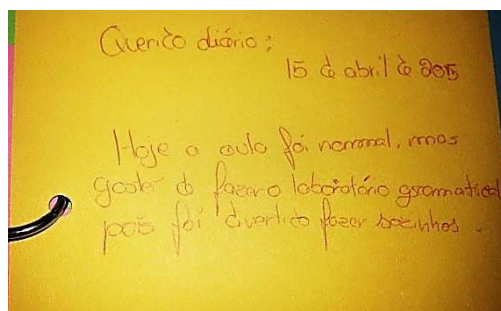 Querido diário:
15 de abril de 2015
Hoje a aula foi normal, mas
gostei de fazer o laboratório gramatical
pois foi divertido fazer sozinhos.